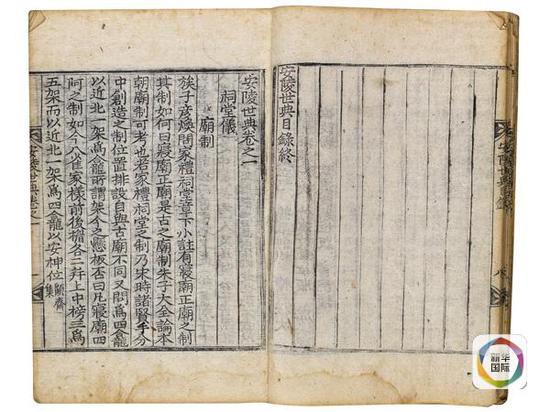 安陵世典目錄
八
安陵世典目錄終
安陵世典卷之一
祠堂儀
廟制
族子彦煥問家禮祠堂章下小註有寢廟正廟之制
其制如何曰寢廟正廟是古之廟制朱子大全論本
朝廟制可考也家禮祠堂之制乃宋時諸賢手分
中創造之制位置排設自與古廟不同又問爲四龕
以近北一架爲龕所謂架今之懸板否曰凡寢廟四
阿之制如今人家樣前後簷各二幷上中榜三爲
五架而以近北一架爲四龕以安神位顧齋集
安陵世典卷之一
新华国际